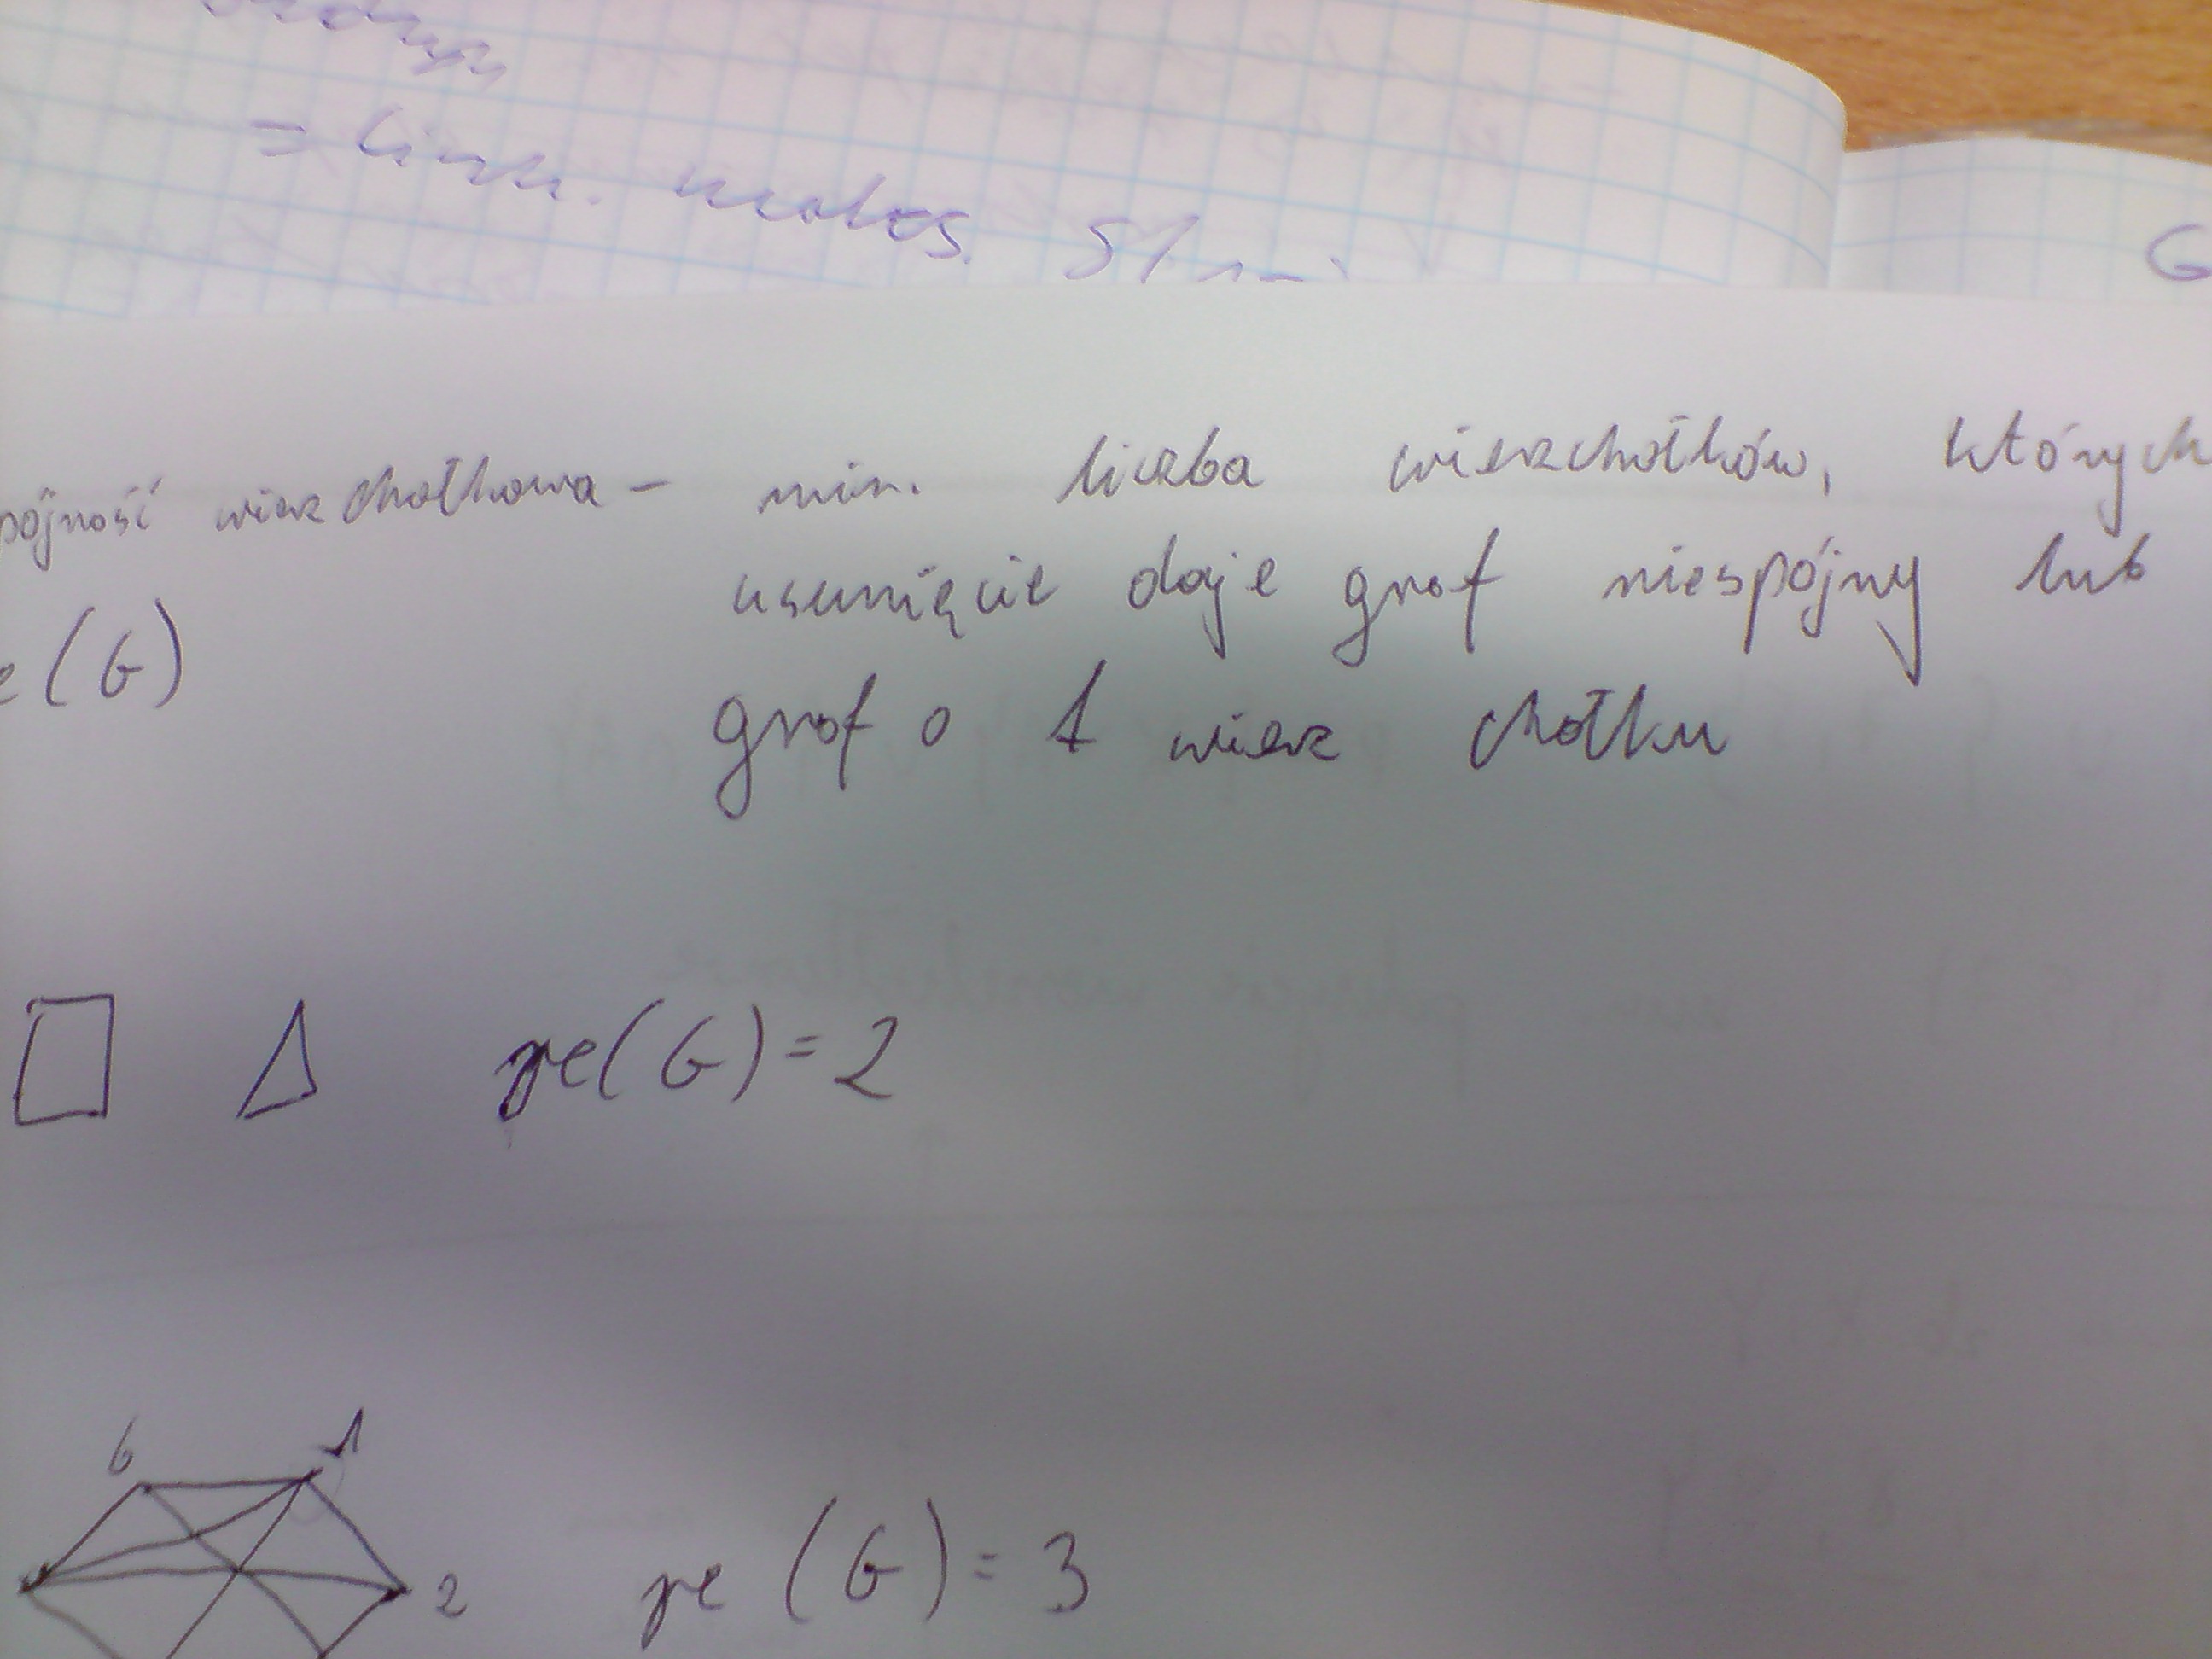 = liczb.
G
pójność wierzchołkowa – min. liczba wierzchołków, których
usunięcie daje graf niespójny lub
e(G)
graf o 1 wierz chołku
æ(G) = 2
6 1
2 æ(G) = 3